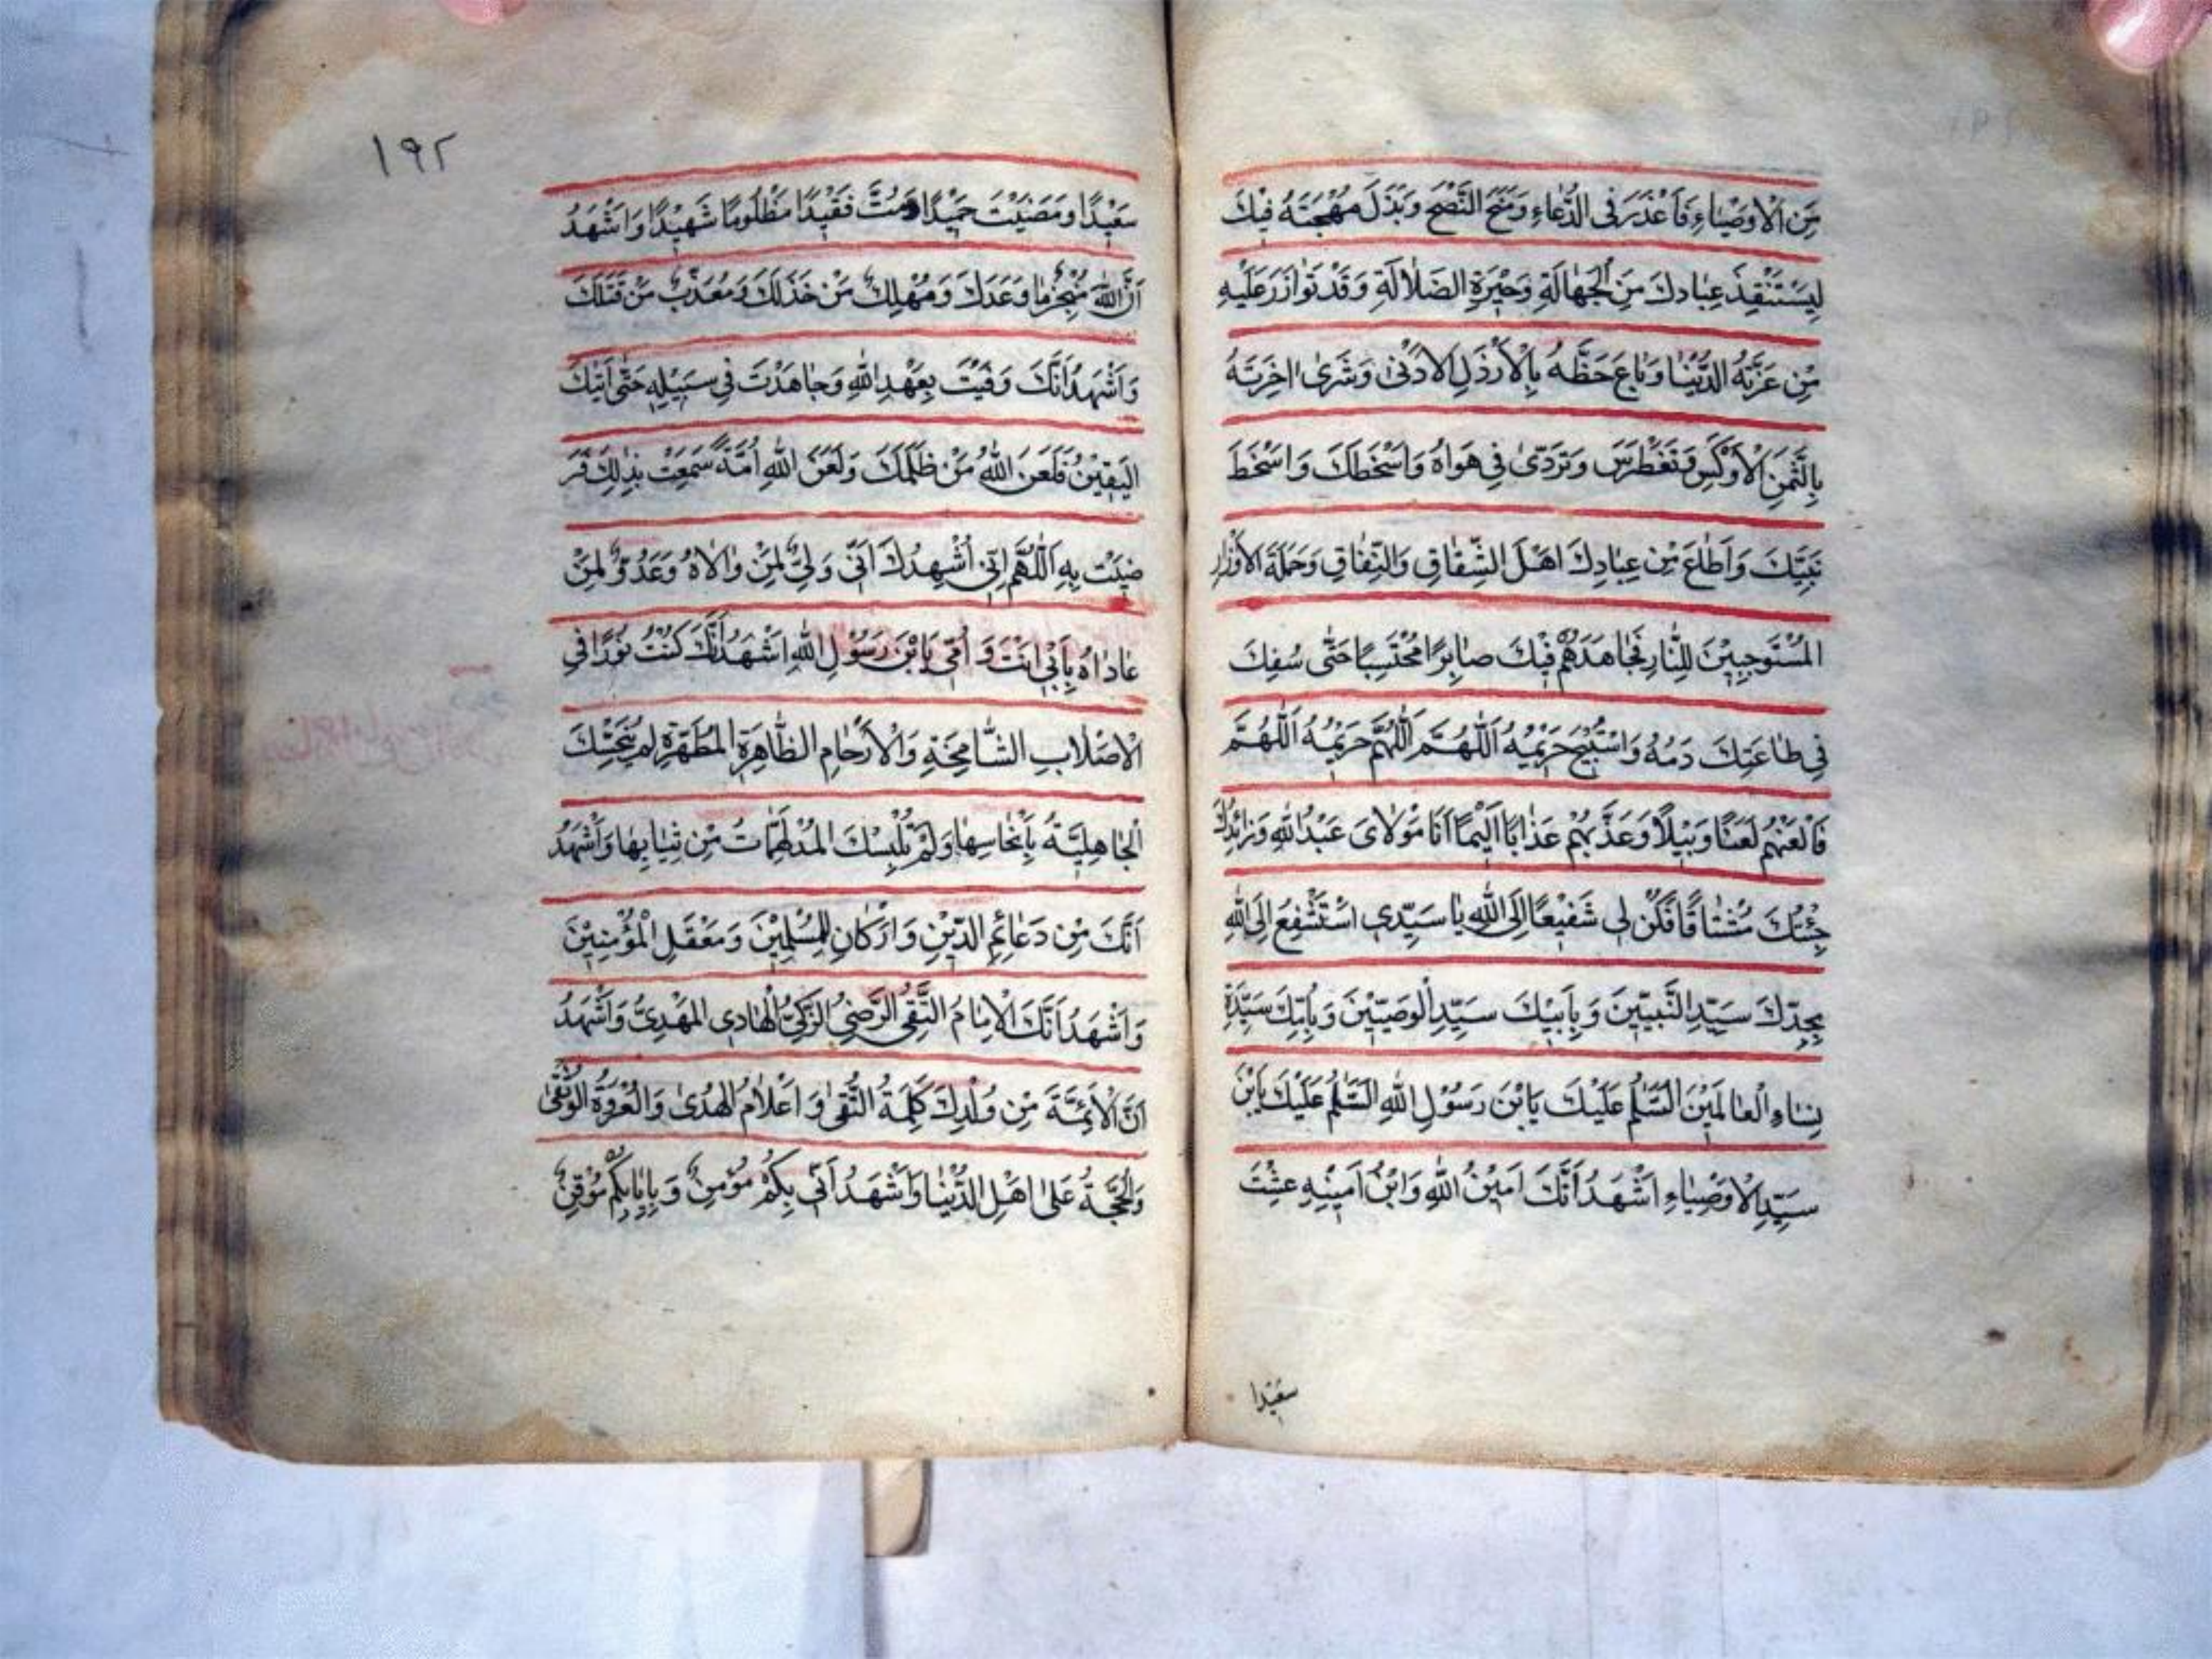 مِنَ الْاَوْصِيَاءِ فَاَعْذَرَ فِى الدُّعَاءِ وَمَنَحَ النُّصْحَ وَبَذَلَ مُهْجَتَهُ فِيْكَ
لِيَسْتَنْقِذَ عِبَادَكَ مِنَ الْجَهَالَةِ وَحَيْرَةِ الضَّلَالَةِ وَقَدْ تَوَازَرَ عَلَيْهِ
مَنْ غَرَّتْهُ الدُّنْيَا وَبَاعَ حَظَّهُ بِالْاَرْذَلِ الْاَدْنٰى وَشَرٰى اٰخِرَتَهُ
بِالثَّمَنِ الْاَوْكَسِ وَتَغَطْرَسَ وَتَرَدّٰى فِى هَوَاهُ وَاَسْخَطَكَ وَاَسْخَطَ
نَبِيَّكَ وَاَطَاعَ مِنْ عِبَادِكَ اَهْلَ الشِّقَاقِ وَالنِّفَاقِ وَحَمَلَةَ الْاَوْزَارِ
الْمُسْتَوْجِبِيْنَ لِلنَّارِ فَجَاهَدَهُمْ فِيْكَ صَابِرًا مُحْتَسِبًا حَتّٰى سُفِكَ
فِى طَاعَتِكَ دَمُهُ وَاسْتُبِيْحَ حَرِيْمُهُ اَللّٰهُمَّ اَللّٰهُمَّ حَرِيْمُهُ اَللّٰهُمَّ
فَالْعَنْهُمْ لَعْنًا وَبِيْلًا وَعَذِّبْهُمْ عَذَابًا اَلِيْمًا اَنَا مَوْلَاىَ عَبْدُ اللّٰهِ وَزَائِرُكَ
جِئْتُكَ مُشْتَاقًا فَكُنْ لِى شَفِيْعًا اِلَى اللّٰهِ يَا سَيِّدِى اسْتَشْفِعُ اِلَى اللّٰهِ
بِجَدِّكَ سَيِّدِ النَّبِيِّينَ وَبِاَبِيْكَ سَيِّدِ الْوَصِيِّيْنَ وَبِاُمِّكَ سَيِّدَةِ
نِسَاءِ الْعَالَمِيْنَ السَّلٰمُ عَلَيْكَ يَابْنَ رَسُوْلِ اللّٰهِ السَّلٰمُ عَلَيْكَ يَابْنَ
سَيِّدِ الْاَوْصِيَاءِ اَشْهَدُ اَنَّكَ اَمِيْنُ اللّٰهِ وَابْنُ اَمِيْنِهِ عِشْتَ
سَعِيْدًا
١٩٢
سَعِيْدًا وَمَضَيْتَ حَمِيْدًا وَمُتَّ فَقِيْدًا مَظْلُومًا شَهِيْدًا وَاَشْهَدُ
اَنَّ اللّٰهَ مُنْجِزٌ مَا وَعَدَكَ وَمُهْلِكٌ مَنْ خَذَلَكَ وَمُعَذِّبٌ مَنْ قَتَلَكَ
وَاَشْهَدُ اَنَّكَ وَفَيْتَ بِعَهْدِ اللّٰهِ وَجَاهَدْتَ فِى سَبِيْلِهِ حَتّٰى اَتٰيكَ
الْيَقِيْنُ فَلَعَنَ اللّٰهُ مَنْ ظَلَمَكَ وَلَعَنَ اللّٰهُ اُمَّةً سَمِعَتْ بِذٰلِكَ فَرَ
ضِيَتْ بِهِ اَللّٰهُمَّ اِنِّى اُشْهِدُكَ اَنِّى وَلِىٌّ لِمَنْ وَالَاهُ وَعَدُوٌّ لِمَنْ
عَادَاهُ بِاَبِى اَنْتَ وَ اُمِّى يَابْنَ رَسُوْلِ اللّٰهِ اَشْهَدُ اَنَّكَ كُنْتَ نُوْرًا فِى
الْاَصْلَابِ الشَّامِخَةِ وَالْاَرْحَامِ الطَّاهِرَةِ الْمُطَهَّرَةِ لَمْ يُنَجِّسْكَ
الْجَاهِلِيَّةُ بِاَنْجَاسِهَا وَلَمْ تُلْبِسْكَ الْمُدْلَهِمَّاتُ مِنْ ثِيَابِهَا وَاَشْهَدُ
اَنَّكَ مِنْ دَعَائِمِ الدِّيْنِ وَاَرْكَانِ الْمُسْلِمِيْنَ وَمَعْقَلِ الْمُؤْمِنِيْنَ
وَاَشْهَدُ اَنَّكَ الْاِمَامُ التَّقِىُّ الرَّضِىُّ الزَّكِىُّ الْهَادِى الْمَهْدِىُّ وَاَشْهَدُ
اَنَّ الْاَئِمَّةَ مِنْ وُلْدِكَ كَلِمَةُ التَّقْوٰى وَ اَعْلَامُ الْهُدٰى وَالْعُرْوَةُ الْوُثْقٰى
وَالْحُجَّةُ عَلٰى اَهْلِ الدُّنْيَا وَاَشْهَدُ اَنِّى بِكُمْ مُؤْمِنٌ وَبِاِيَابِكُمْ مُوْقِنٌ